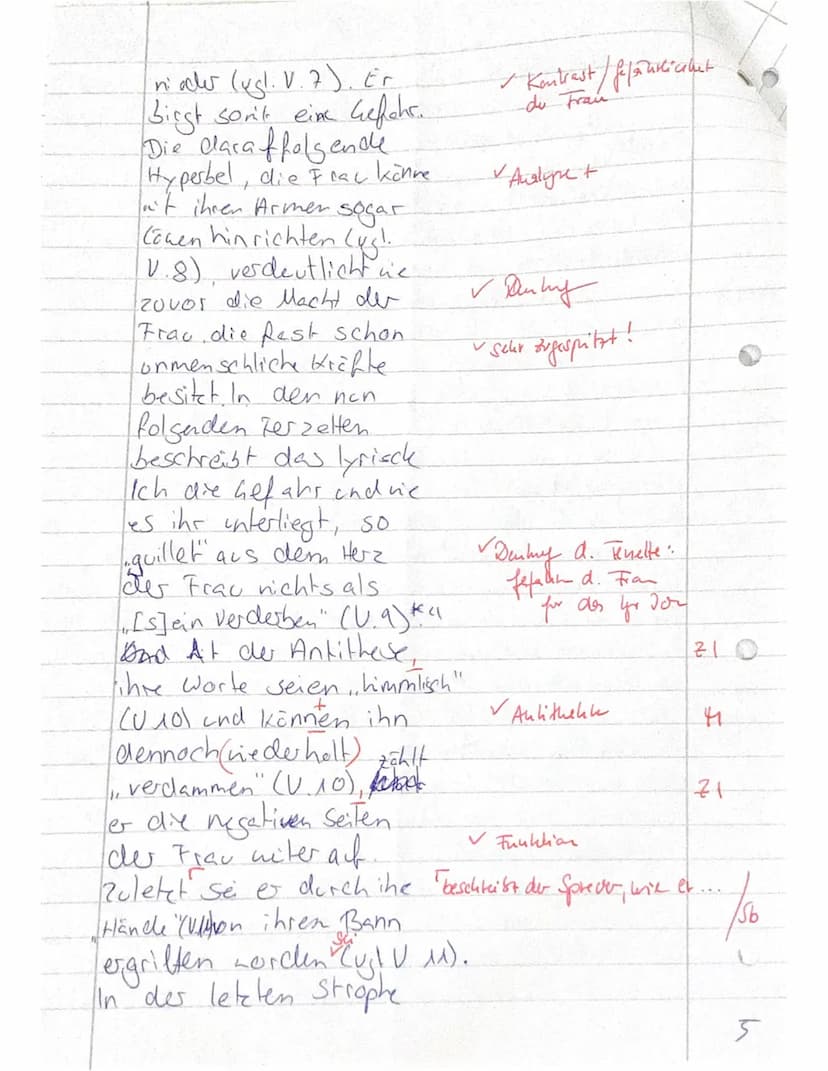 nieder (vgl. V. 7). Er
✓ Kontrast / Gefährlichkeit
der Frau
birgt somit eine Gefahr.
Die darauffolgende
Hyperbel, die Frau könne
✓ Analyse +
mit ihren Armen sogar
Löwen hinrichten (vgl.
V. 8), verdeutlicht wie
zuvor die Macht der
✓ Deutung
Frau, die fast schon
✓ sehr zugespitzt!
unmenschliche Kräfte
besitzt. In den nun
folgenden Terzetten
beschreibt das lyrische
Ich die Gefahr und wie
es ihr unterliegt, so
„quillet" aus dem Herz
✓ Deutung d. Terzette:
der Frau nichts als
Gefahr d. Frau
„[s]ein verderben" (V. 9)
für das lyr Ich
Mit der Antithese,
Z1
ihre Worte seien „himmlisch"
(V 10) und können ihn
✓ Antithetik
dennoch (wiederholt)
zählt
„verdammen" (V. 10),
Z1
er die negativen Seiten
der Frau weiter auf.
✓ Funktion
Zuletzt sei er durch ihre
beschreibt der Sprecher, wie er ...
„Hände" (V.11) von ihren Bann
/Sb
ergriffen worden sei (vgl V 11).
In der letzten Strophe
5